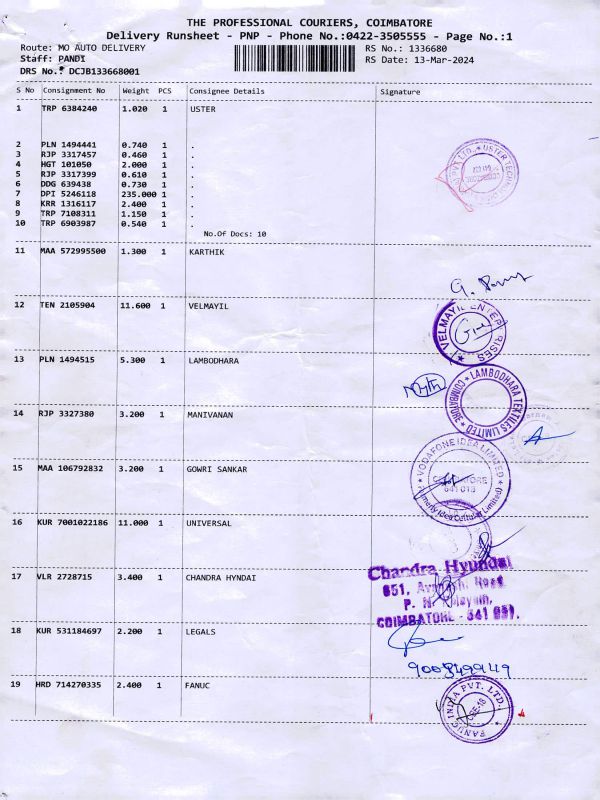 THE PROFESSIONAL COURIERS, COIMBATORE
Delivery Runsheet - PNP - Phone No.:0422-3505555 - Page No.:1
Route: MO AUTO DELIVERY RS No.: 1336680
Staff: PANDI RS Date: 13-Mar-2024
DRS No.: DCJB133668001
S No Consignment No Weight PCS Consignee Details Signature
1 TRP 6384240 1.020 1 USTER
2 PLN 1494441 0.740 1 .
3 RJP 3317457 0.460 1 .
4 HGT 101050 2.000 1 .
5 RJP 3317399 0.610 1 .
6 DDG 639438 0.730 1 .
7 DPI 5246118 235.000 1 .
8 KRR 1316117 2.400 1 .
9 TRP 7108311 1.150 1 .
10 TRP 6903987 0.540 1 .
No.Of Docs: 10
11 MAA 572995500 1.300 1 KARTHIK
12 TEN 2105904 11.600 1 VELMAYIL
VELMAYIL ENTERPRISES
13 PLN 1494515 5.300 1 LAMBODHARA
LAMBODHARA TEXTILES LIMITED
COIMBATORE
14 RJP 3327380 3.200 1 MANIVANAN
15 MAA 106792832 3.200 1 GOWRI SANKAR
VODAFONE IDEA LIMITED
(Formerly Idea Cellular Limited)
16 KUR 7001022186 11.000 1 UNIVERSAL
17 VLR 2728715 3.400 1 CHANDRA HYNDAI
Chandra Hyundai
COIMBATORE - 641
18 KUR 531184697 2.200 1 LEGALS
19 HRD 714270335 2.400 1 FANUC
FANUC INDIA PVT. LTD.